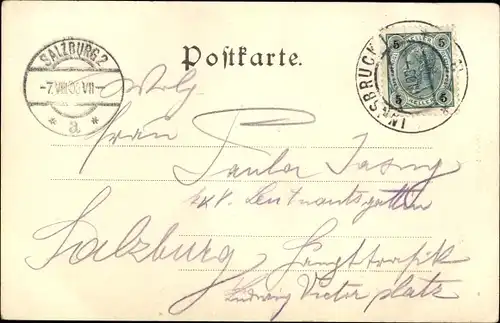 SALZBURG 2
-7.VIII.00.VII-
* a *
Postkarte.
INNSBRUCK 1
5 5
HELLER
5 5
Frau
Paula
k.u.k. Leutnantsgattin
Salzburg Haupttrafik
Ludwig Victor platz